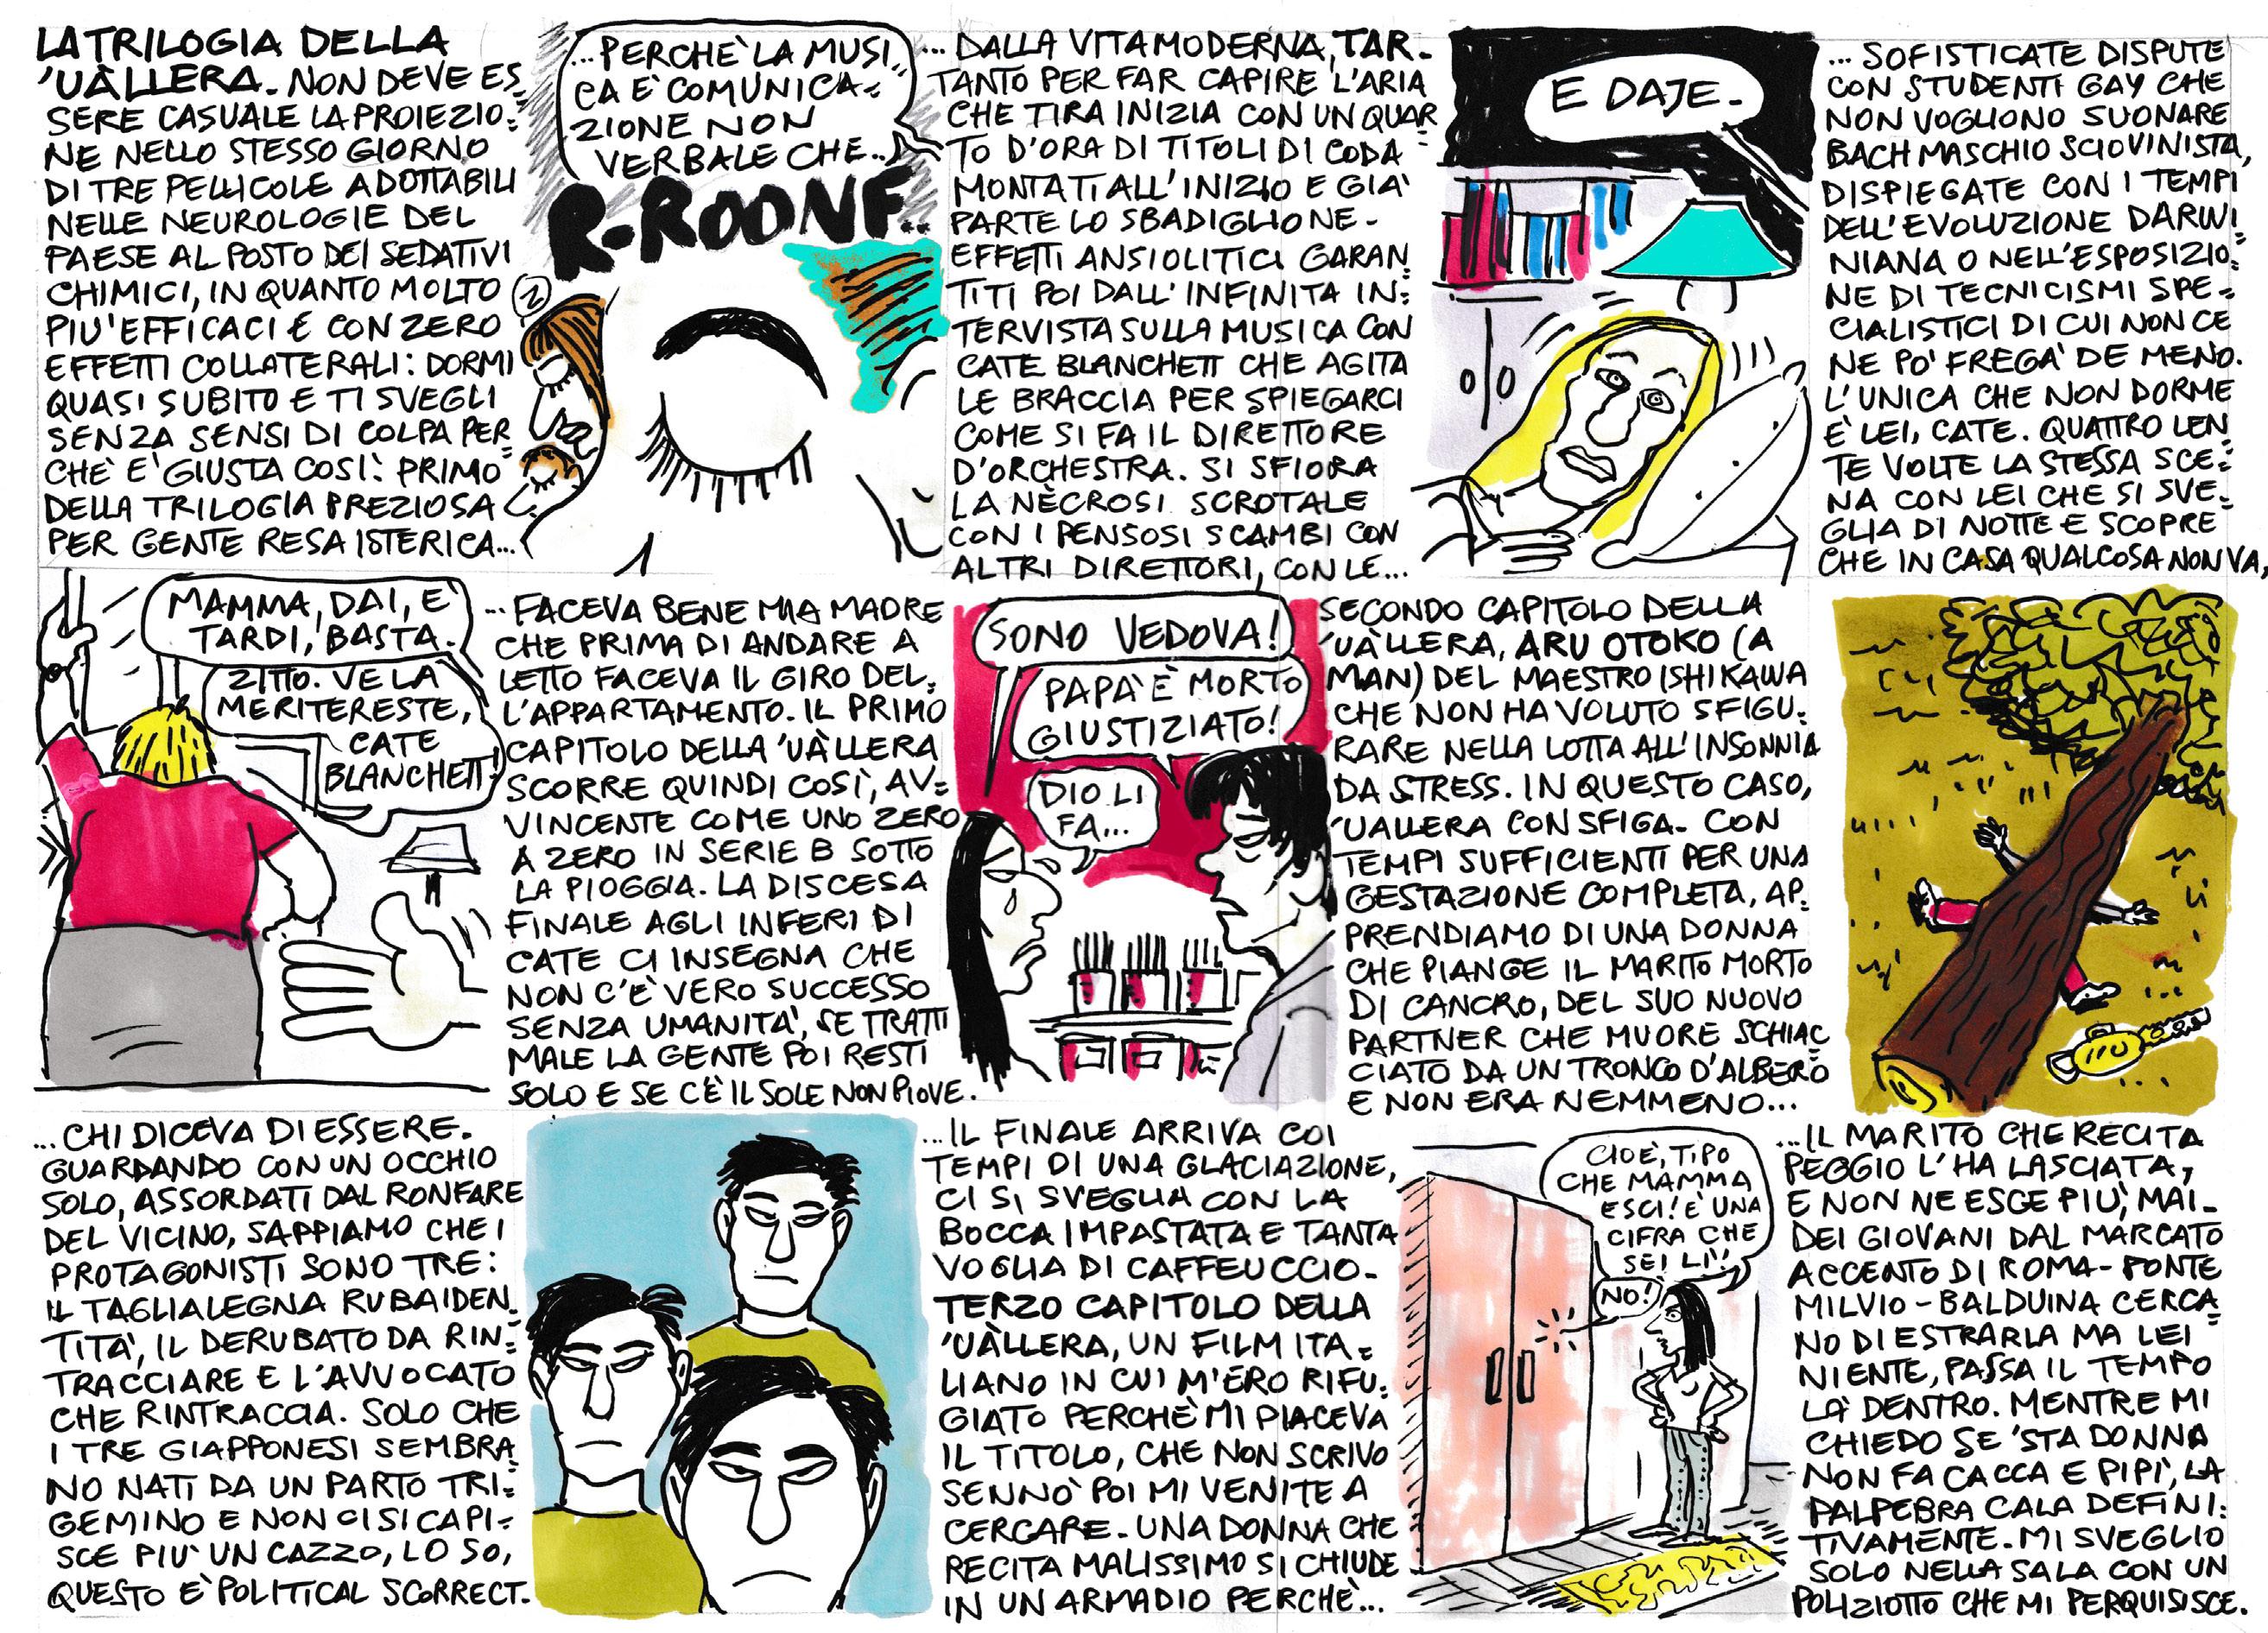 LA TRILOGIA DELLA
'UÀLLERA. NON DEVE ES
SERE CASUALE LA PROIEZIO:
NE NELLO STESSO GIORNO
DI TRE PELLICOLE ADOTTABILI
NELLE NEUROLOGIE DEL
PAESE AL POSTO DEI SEDATIVI
CHIMICI, IN QUANTO MOLTO
PIU' EFFICACI E CON ZERO
EFFETTI COLLATERALI: DORMI
QUASI SUBITO E TI SVEGLI
SENZA SENSI DI COLPA PER
CHÈ E' GIUSTA COSÌ. PRIMO
DELLA TRILOGIA PREZIOSA
PER GENTE RESA ISTERICA...
...PERCHÈ LA MUSI
CA E' COMUNICA=
ZIONE NON
VERBALE CHE...
R-ROONF..
Z
... DALLA VITA MODERNA, TAR.
TANTO PER FAR CAPIRE L'ARIA
CHE TIRA INIZIA CON UN QUAR
TO D'ORA DI TITOLI DI CODA
MONTATI ALL'INIZIO E GIA'
PARTE LO SBADIGLIONE-
EFFETTI ANSIOLITICI GARAN
TITI POI DALL'INFINITA IN:
TERVISTA SULLA MUSICA CON
CATE BLANCHETT CHE AGITA
LE BRACCIA PER SPIEGARCI
COME SI FA IL DIRETTORE
D'ORCHESTRA. SI SFIORA
LA NÈCROSI SCROTALE
CON I PENSOSI SCAMBI CON
ALTRI DIRETTORI, CON LE...
E DAJE.
... SOFISTICATE DISPUTE
CON STUDENTI GAY CHE
NON VOGLIONO SUONARE
BACH MASCHIO SCIOVINISTA,
DISPIEGATE CON I TEMPI
DELL'EVOLUZIONE DARWI
NIANA O NELL'ESPOSIZIO:
NE DI TECNICISMI SPE=
CIALISTICI DI CUI NON CE
NE PO' FREGA' DE MENO.
L'UNICA CHE NON DORME
È LEI, CATE. QUATTRO LEN
TE VOLTE LA STESSA SCE:
NA CON LEI CHE SI SVE=
GLIA DI NOTTE E SCOPRE
CHE IN CASA QUALCOSA NON VA,
MAMMA, DAI, E'
TARDI, BASTA.
ZITTO. VE LA
MERITERESTE,
CATE
BLANCHETT!
... FACEVA BENE MIA MADRE
CHE PRIMA DI ANDARE A
LETTO FACEVA IL GIRO DEL,
L'APPARTAMENTO. IL PRIMO
CAPITOLO DELLA 'UÀLLERA
SCORRE QUINDI COSÌ, AV=
VINCENTE COME UNO ZERO
A ZERO IN SERIE B SOTTO
LA PIOGGIA. LA DISCESA
FINALE AGLI INFERI DI
CATE CI INSEGNA CHE
NON C'È VERO SUCCESSO
SENZA UMANITA', SE TRATTI
MALE LA GENTE POI RESTI
SOLO E SE C'È IL SOLE NON PIOVE.
SONO VEDOVA!
PAPA' È MORTO
GIUSTIZIATO!
DIO LI
FA...
SECONDO CAPITOLO DELLA
'UÀLLERA, ARU OTOKO (A
MAN) DEL MAESTRO ISHIKAWA
CHE NON HA VOLUTO SFIGU:
RARE NELLA LOTTA ALL'INSONNIA
DA STRESS. IN QUESTO CASO,
'UALLERA CON SFIGA. CON
TEMPI SUFFICIENTI PER UNA
GESTAZIONE COMPLETA, AP.
PRENDIAMO DI UNA DONNA
CHE PIANGE IL MARITO MORTO
DI CANCRO, DEL SUO NUOVO
PARTNER CHE MUORE SCHIAC
CIATO DA UN TRONCO D'ALBERO
E NON ERA NEMMENO...
... CHI DICEVA DI ESSERE.
GUARDANDO CON UN OCCHIO
SOLO, ASSORDATI DAL RONFARE
DEL VICINO, SAPPIAMO CHE I
PROTAGONISTI SONO TRE:
IL TAGLIALEGNA RUBAIDEN.
TITA', IL DERUBATO DA RIN:
TRACCIARE E L'AVVOCATO
CHE RINTRACCIA. SOLO CHE
I TRE GIAPPONESI SEMBRA
NO NATI DA UN PARTO TRI=
GEMINO E NON CI SI CAPI=
SCE PIU' UN CAZZO, LO SO,
QUESTO E' POLITICAL SCORRECT.
...IL FINALE ARRIVA COI
TEMPI DI UNA GLACIAZIONE,
CI SI SVEGLIA CON LA
BOCCA IMPASTATA E TANTA
VOGLIA DI CAFFEUCCIO-
TERZO CAPITOLO DELLA
'UÀLLERA, UN FILM ITA=
LIANO IN CUI M'ERO RIFU:
GIATO PERCHÈ MI PIACEVA
IL TITOLO, CHE NON SCRIVO
SENNO' POI MI VENITE A
CERCARE. UNA DONNA CHE
RECITA MALISSIMO SI CHIUDE
IN UN ARMADIO PERCHÈ...
CIOÈ, TIPO
CHE MAMMA
ESCI! È UNA
CIFRA CHE
SEI LÌ!
NO!
...IL MARITO CHE RECITA
PEGGIO L'HA LASCIATA,
E NON NE ESCE PIU', MAI.
DEI GIOVANI DAL MARCATO
ACCENTO DI ROMA-PONTE
MILVIO-BALDUINA CERCA
NO DI ESTRARLA MA LEI
NIENTE, PASSA IL TEMPO
LÀ DENTRO. MENTRE MI
CHIEDO SE 'STA DONNA
NON FA CACCA E PIPÌ, LA
PALPEBRA CALA DEFINI:
TIVAMENTE. MI SVEGLIO
SOLO NELLA SALA CON UN
POLIZIOTTO CHE MI PERQUISISCE.